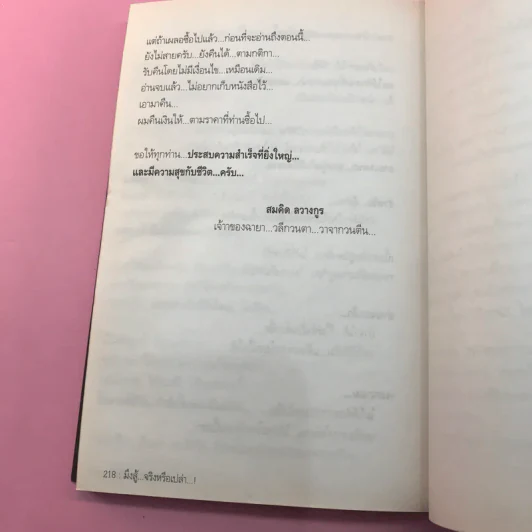 แต่ถ้าเผลอซื้อไปแล้ว...ก่อนที่จะอ่านถึงตอนนี้...
ยังไม่สายครับ...ยังคืนได้...ตามกติกา...
รับคืนโดยไม่มีเงื่อนไข...เหมือนเดิม...
อ่านจบแล้ว...ไม่อยากเก็บหนังสือไว้...
เอามาคืน...
ผมคืนเงินให้...ตามราคาที่ท่านซื้อไป...
ขอให้ทุกท่าน...ประสบความสำเร็จที่ยิ่งใหญ่...
และมีความสุขกับชีวิต...ครับ...
สมคิด ลวางกูร
เจ้าของฉายา...วลีกวนตา...วาจากวนตีน...
218 : มึงสู้...จริงหรือเปล่า...!